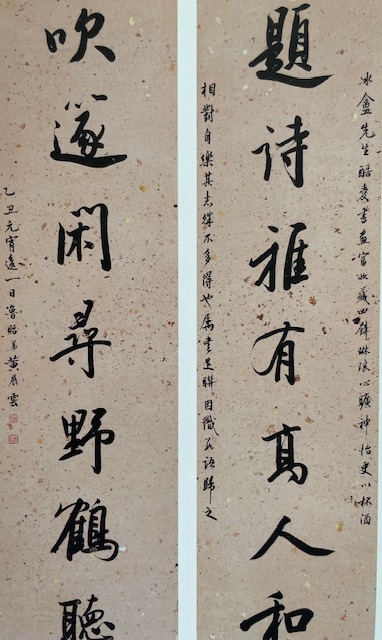 冰盦先生酷愛書畫富收藏四壁琳琅心曠神怡更以杯酒
題詩雅有高人和
相對自樂其志殊不多得也屬書是聯因識語歸之
吹篴閑尋野鶴聽
乙丑元宵後一日魯弟黃雲